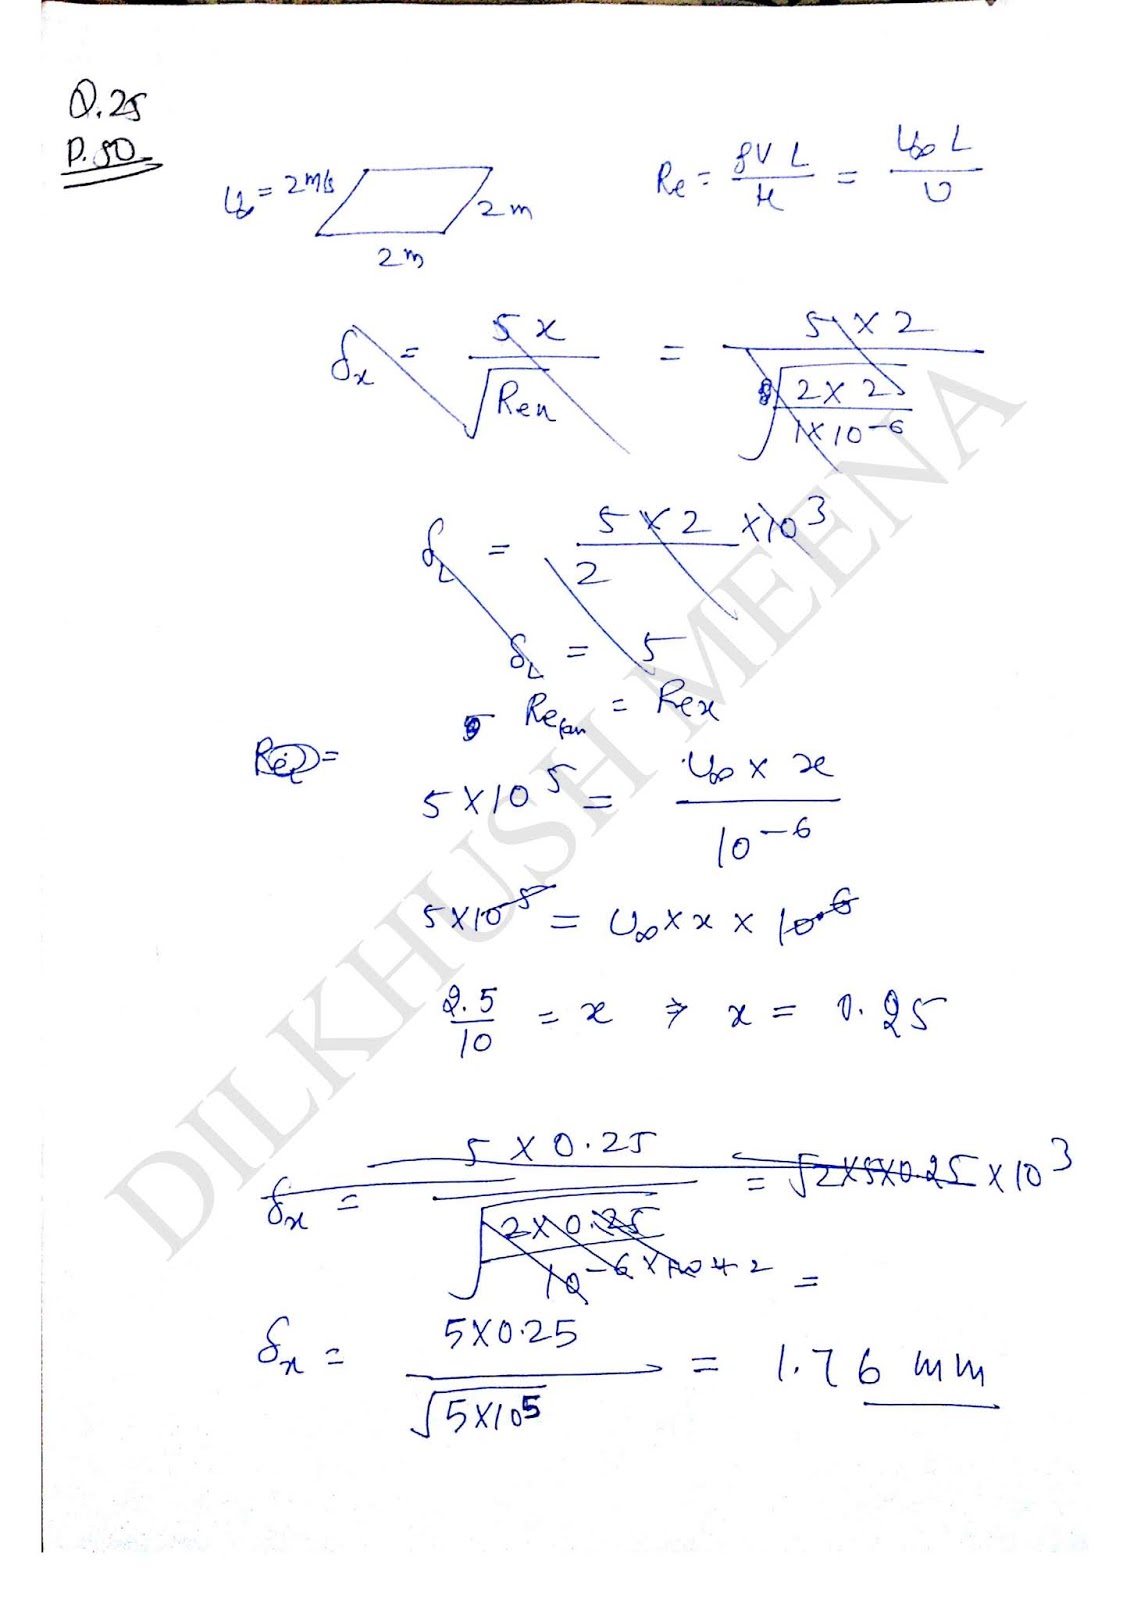 Q.25
P.50
U∞ = 2m/s
2m
2m
Re = ρVL/μ = U∞L/υ
δx = 5x/√Rex = 5×2/√(2×2/1×10⁻⁶)
δL = 5×2/2 ×10³
δL = 5
Re = Rex
5×10⁵ = U∞ × x/10⁻⁶
5×10⁵ = U∞ × x × 10⁶
2.5/10 = x ⇒ x = 0.25
δx = 5×0.25/√(2×0.25/10⁻⁶) = √2×5×0.25×10³
=
δx = 5×0.25/√5×10⁵ = 1.76 mm
DILKHUSH MEENA